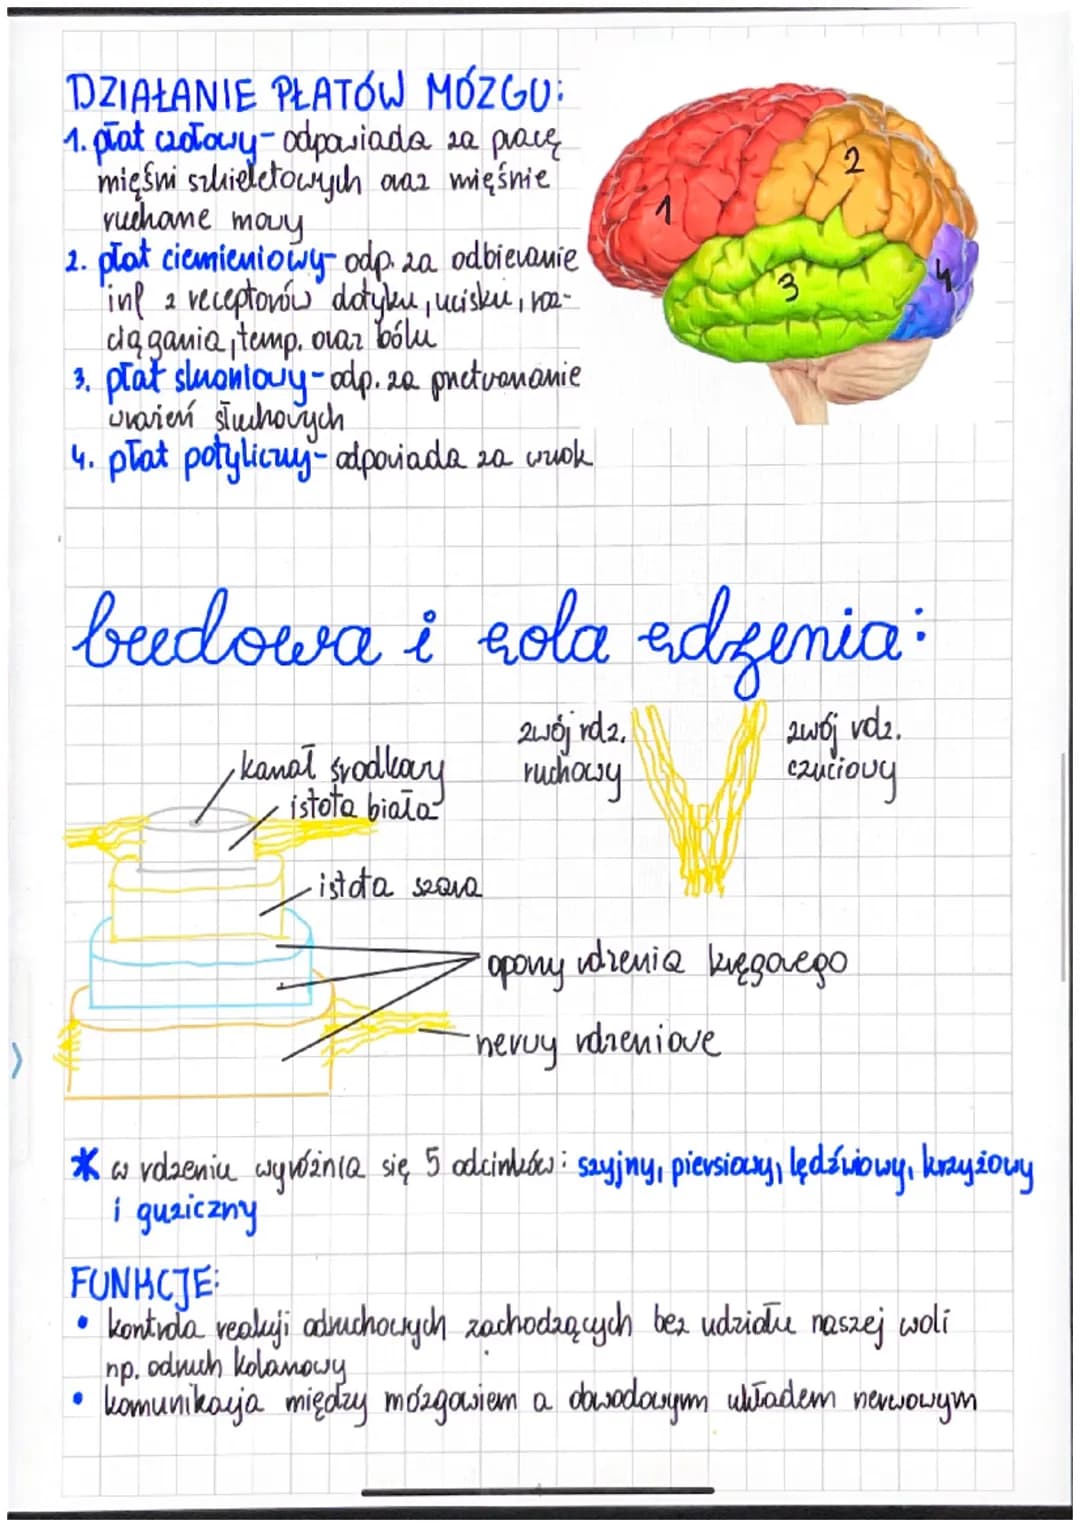 DZIAŁANIE PŁATÓW MÓZGU:
1. płat czołowy - odpowiada za pracę
mięśni szkieletowych oraz mięśnie
ruchowe mowy
2. płat ciemieniowy - odp. za odbieranie
inf z receptorów dotyku, ucisku, roz-
ciągania, temp. oraz bólu
3. płat skroniowy - odp. za przetwarzanie
wrażeń słuchowych
4. płat potyliczny - odpowiada za wzrok
1
2
3
4
budowa i rola rdzenia:
zwój rdz.
ruchowy
zwój rdz.
czuciowy
kanał środkowy
istota biała
istota szara
opony rdzenia kręgowego
nerwy rdzeniowe
* w rdzeniu wyróżnia się 5 odcinków: szyjny, piersiowy, lędźwiowy, krzyżowy
i guziczny
FUNKCJE:
• kontrola reakcji odruchowych zachodzących bez udziału naszej woli
np. odruch kolanowy
• komunikacja między mózgowiem a obwodowym układem nerwowym